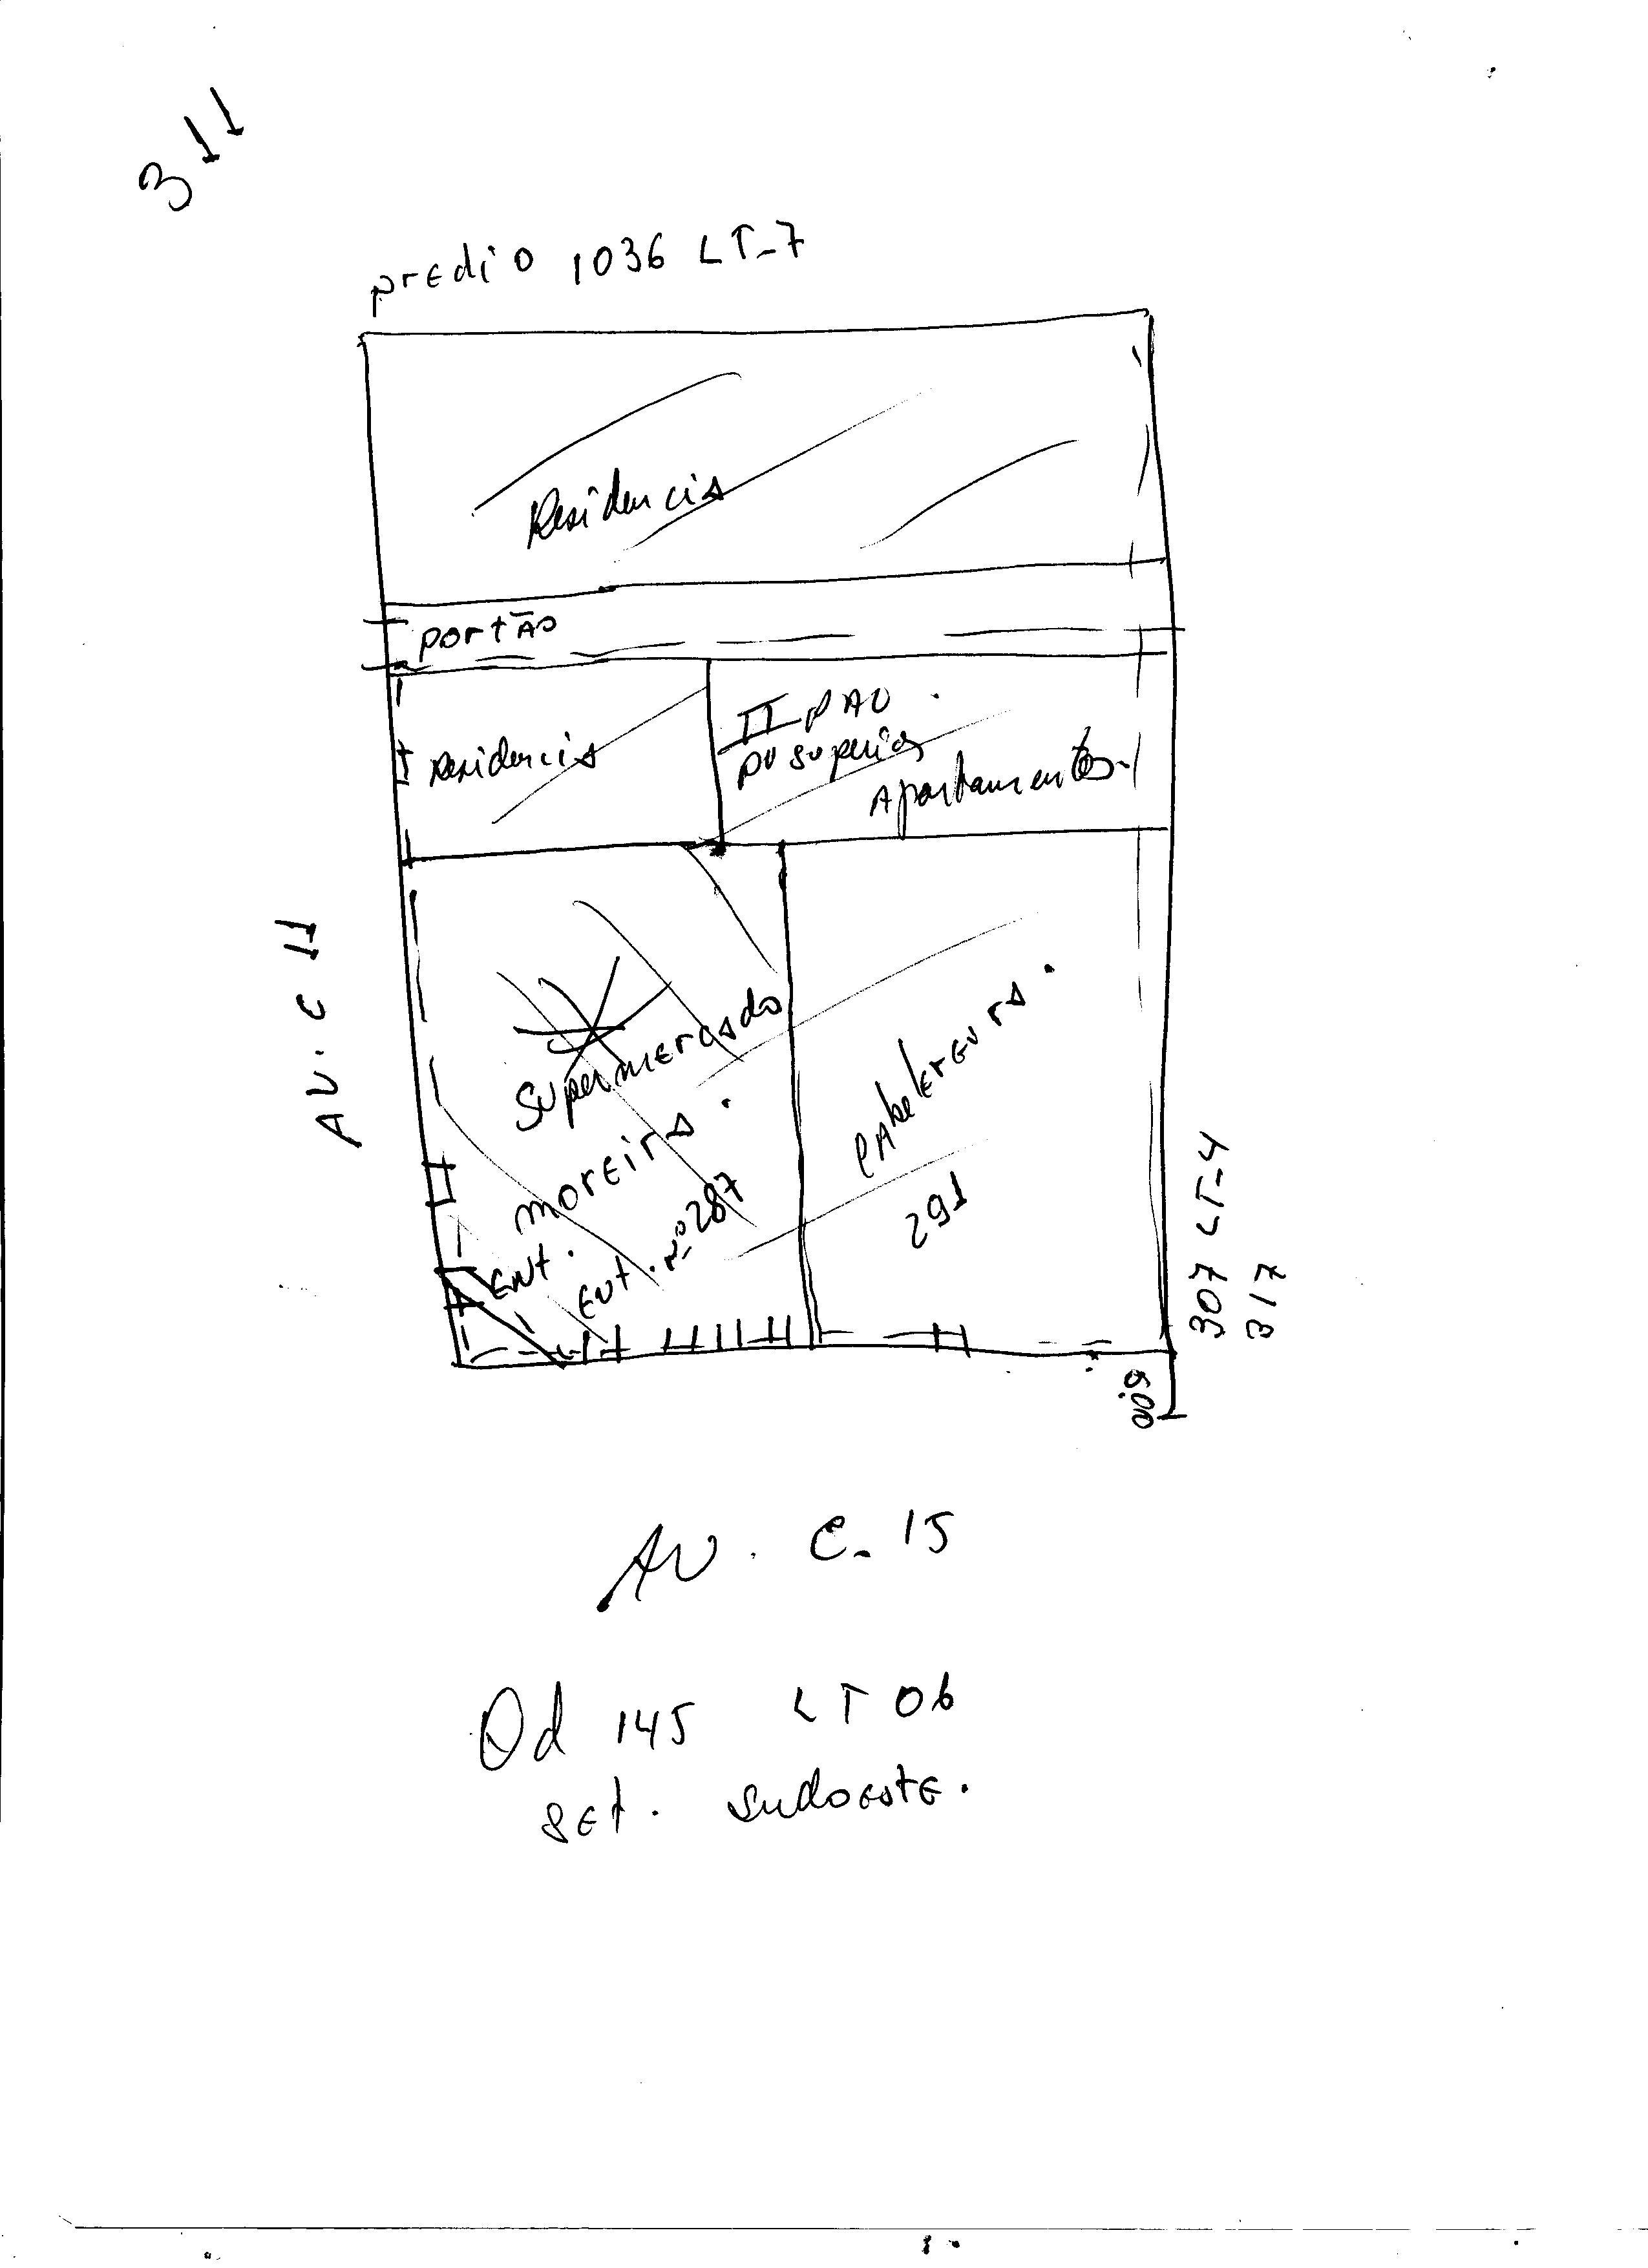 311
predio 1036 LT-7
Residencia
portão
Residencia
II PAV
pv superior
Apartamentos
AV. C 11
Supermercado
moreira.
Ent.
Ent. nº 287
cabelereura.
291
307 LT-4
317
5.00
AV. C. 15
Qd 145 LT 06
set. sudoeste.